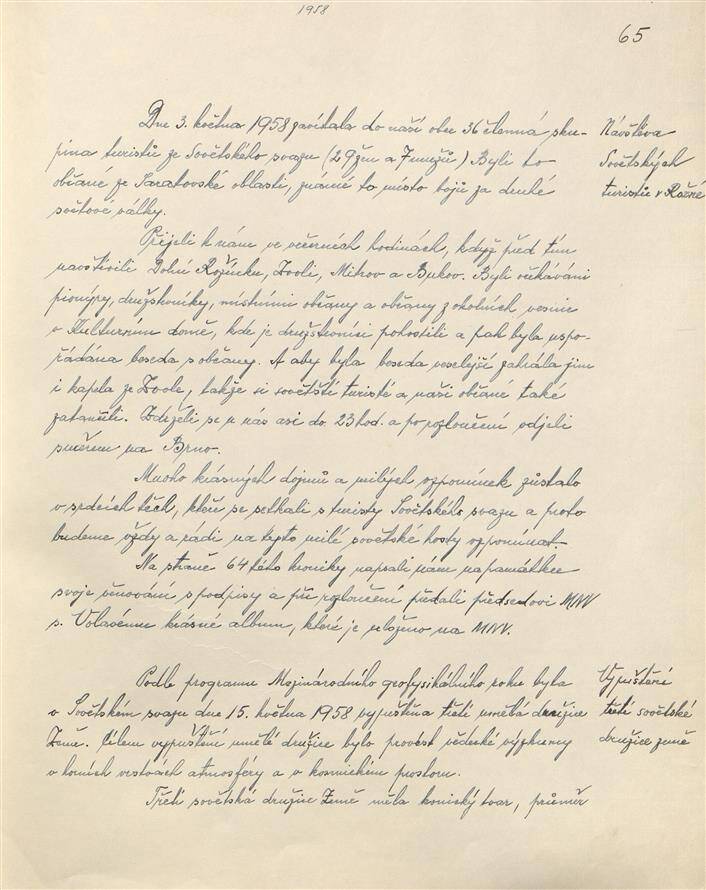 1958
65
Dne 3. května 1958 zavítala do naší obce 36 členná sku-
pina turistů ze Sovětského svazu (29 žen a 7 mužů) Byli to
občané ze Saratovské oblasti, známé to místo bojů za druhé
světové války.
Návštěva
Sovětských
turistů v Rožné
Přijeli k nám ve večerních hodinách, když před tím
navštívili Dolní Rožínku, Zvoli, Mitrov a Bukov. Byli očekáváni
pionýry, družstevníky, místními občany a občany z okolních vesnic
v Kulturním domě, kde je družstevníci pohostili a pak byla uspo-
řádána beseda s občany. A aby byla beseda veselejší zahrála jim
i kapela ze Zvole, takže si sovětští turisté a naši občané také
zatančili. Zdrželi se u nás asi do 23 hod. a po rozloučení odjeli
směrem na Brno.
Mnoho krásných dojmů a milých vzpomínek zůstalo
v srdcích těch, kteří se setkali s turisty Sovětského svazu a proto
budeme vždy a rádi na tyto milé sovětské hosty vzpomínat.
Na straně 64 této kroniky napsali nám na památku
svoje věnování s podpisy a při rozloučení předali předsedovi MNV
s. Volavému krásné album, které je uloženo na MNV.
Podle programu Mezinárodního geofysikálního roku byla
v Sovětském svazu dne 15. května 1958 vypuštěna třetí umělá družice
Země. Cílem vypuštění umělé družice bylo provést vědecké výzkumy
v horních vrstvách atmosféry a v kosmickém prostoru.
Vypuštění
třetí sovětské
družice země
Třetí sovětská družice Země měla konický tvar, průměr